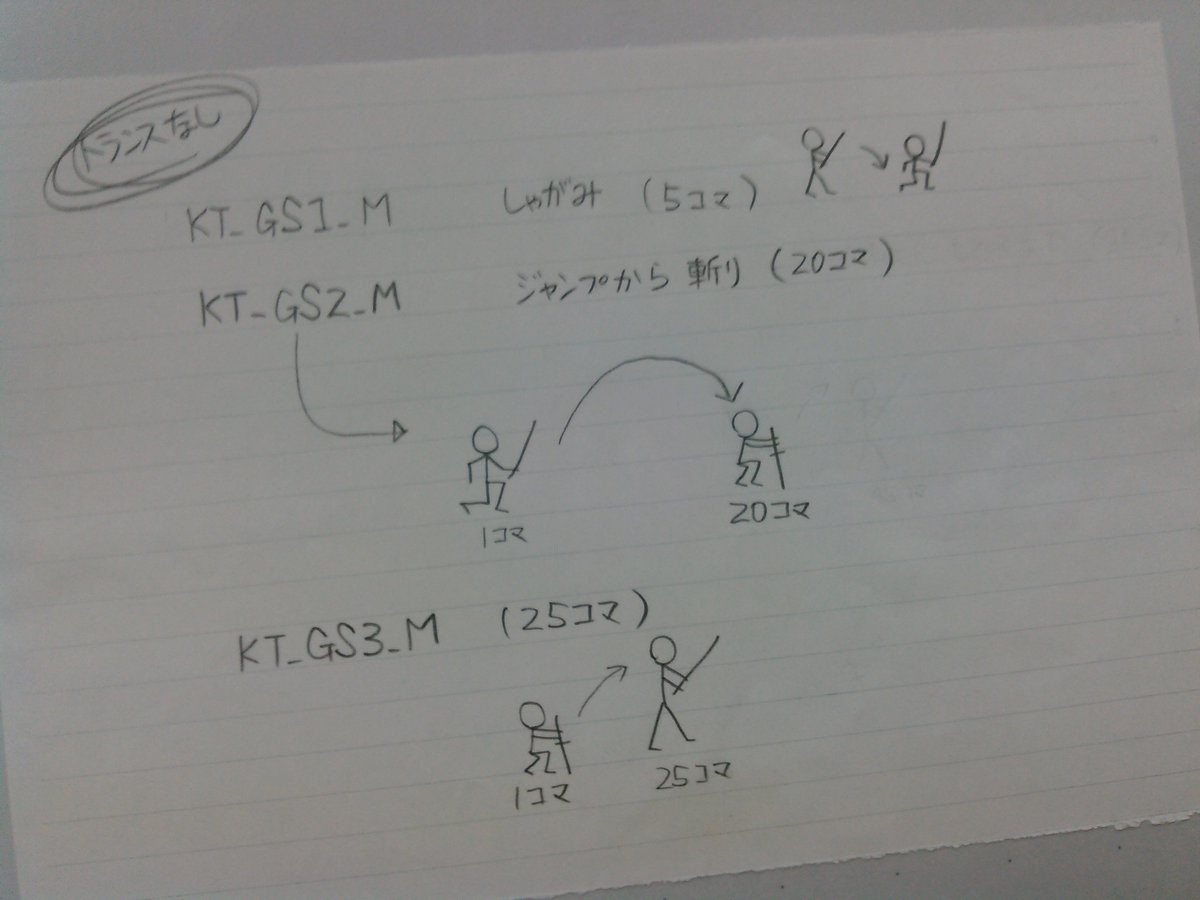 トランスなし
KT_GS1_M しゃがみ (5コマ)
KT_GS2_M ジャンプから 斬り (20コマ)
1コマ
20コマ
KT_GS3_M (25コマ)
1コマ
25コマ